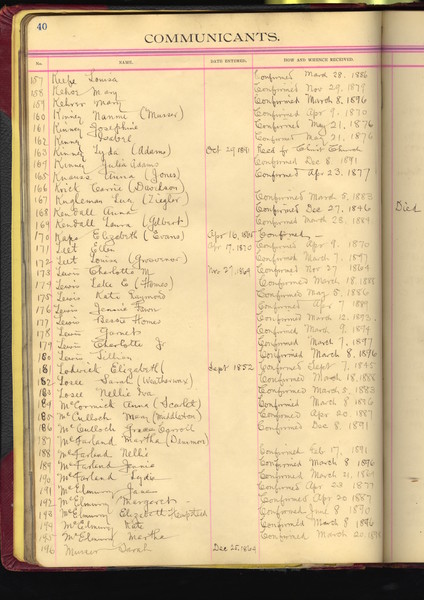 40
COMMUNICANTS.
No. NAME. DATE ENTERED. HOW AND WHENCE RECEIVED.
157 Keefe Louisa Confirmed March 28, 1886
158 Kehor Mary Confirmed Nov 29, 1879
159 Mary Confirmed March 8, 1896
160 Kinney Nannie (Mercer) Confirmed Apr 9, 1870
161 Kinney Josephine Confirmed May 21, 1876
162 Kinney Isabel Confirmed May 21, 1876
163 Kinney Lyda (Adams) Oct 29, 1890 Rec'd fr Christ Church
164 Kinney Julia Adams Confirmed Dec 8, 1891
165 Anna (Jones) Confirmed Apr 23, 1877
166 Krick Carrie (Davidson)
167 Kughleman Lucy (Ziegler) Confirmed March 5, 1883
168 Kendall Anna Confirmed Dec 27, 1846 Died
169 Kendall Laura (Gilbert) Confirmed March 23, 1884
170 Kaps Elizabeth (Evans) Apr 16, Confirmed
171 Leet Ellen Apr 17, 1870 Confirmed Apr 9, 1870
172 Leet Louisa (Grosvenor) Confirmed March 7, 1897
173 Lewis Charlotte M Nov 27, 1864 Confirmed Nov 27 1864
174 Lewis Lelia C (Homes) Confirmed March 18, 1888
175 Lewis Kate Raymond Confirmed May 8, 1886
176 Lewis Jennie Confirmed Apr 7, 1889
177 Lewis Bessie Homes Confirmed March 12, 1893
178 Lewis Garnet Confirmed March 9, 1894
179 Lewis Charlotte J Confirmed March 7, 1897
180 Lewis Lillian Confirmed March 8, 1896
181 Lodwick Elizabeth ( Sept 1852 Confirmed Sept 7, 1845
182 Losee Sarah (Weatherwax) Confirmed March 18, 1888
183 Losee Nellie Confirmed March 5, 1883
184 McCormick Anna (Scarlet) Confirmed March 8 1896
185 McCulloch Mary (Middleton) Confirmed Apr 20, 1887
186 McCulloch Grace Confirmed Dec 8, 1891
187 McFarland Martha
188 McFarland Nellie Confirmed Feb 17, 1891
189 McFarland Jennie Confirmed March 8 1896
190 McFarland Lyda Confirmed March
191 McElmurry Jane Confirmed Apr 23 1877
192 McElmurry Margaret Confirmed Apr 20 1887
193 McElmurry Elizabeth Hempstead Confirmed June 8 1890
194 McElmurry Kate Confirmed March 8 1896
195 McElmurry Martha Confirmed March 20,
196 Mercer Sarah Dec 25, 1864